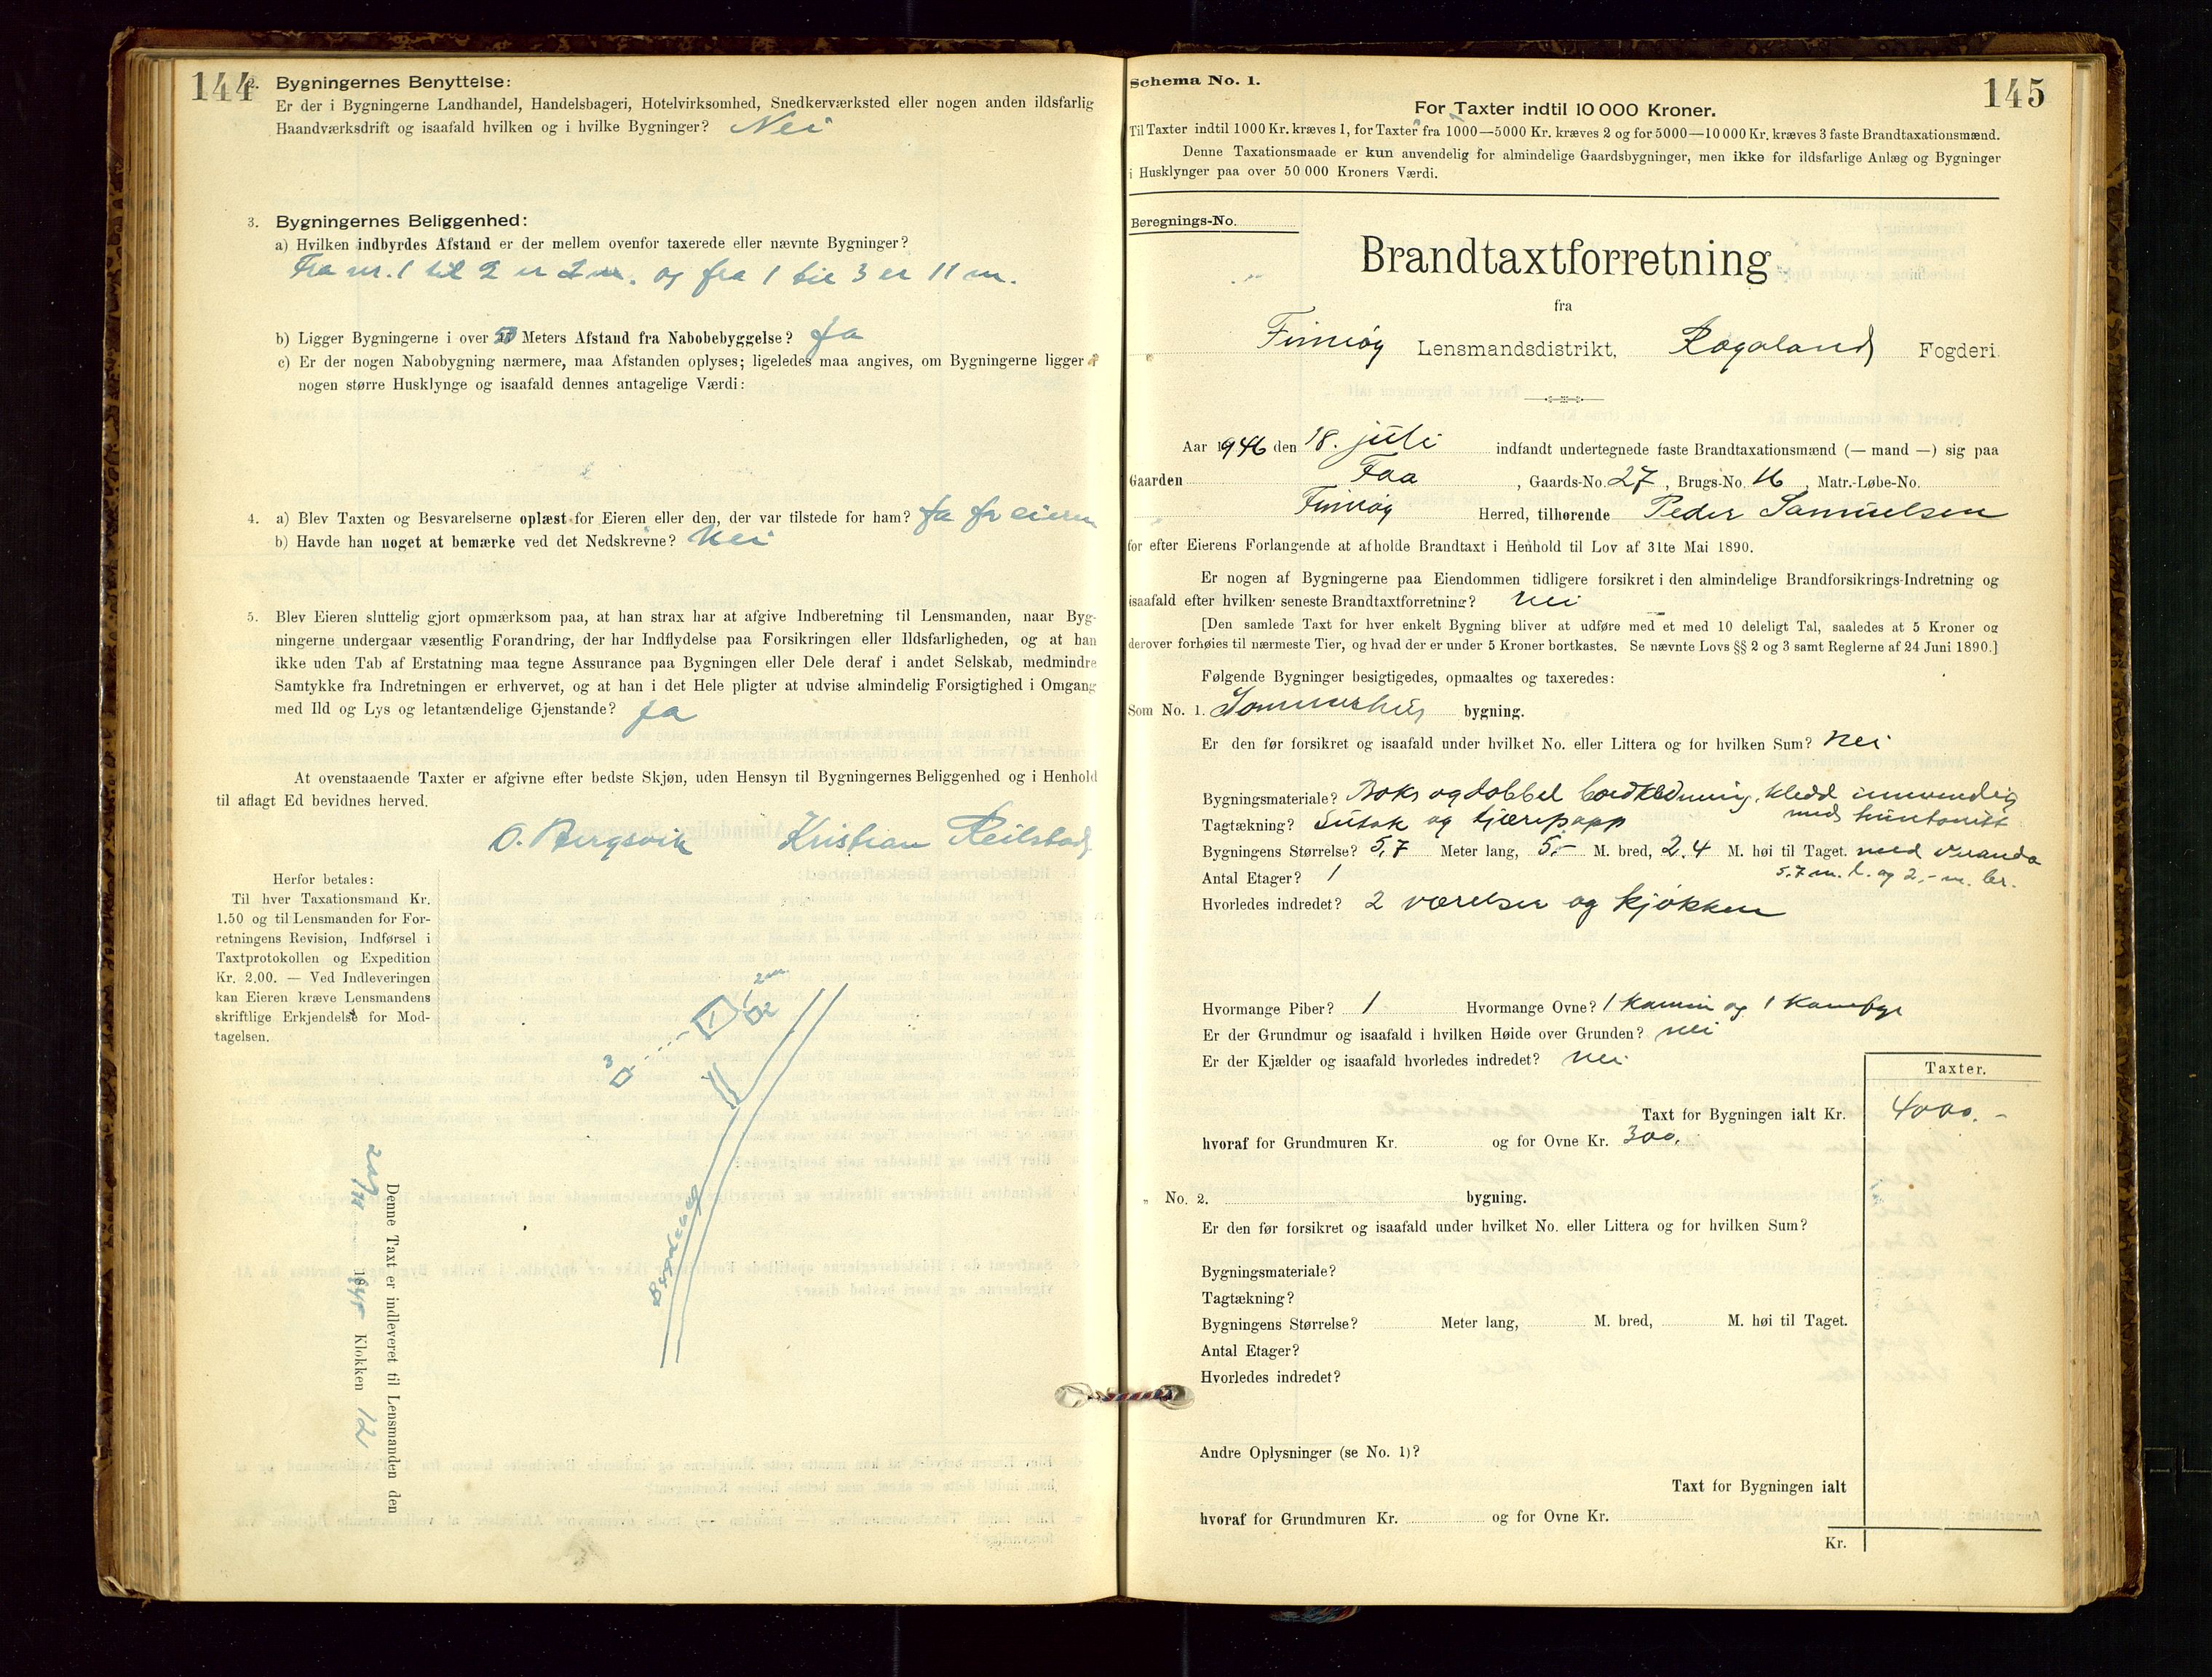 144
2. Bygningernes Benyttelse:
Er der i Bygningerne Landhandel, Handelsbageri, Hotelvirksomhed, Snedkerværksted eller nogen anden ildsfarlig
Haandværksdrift og isaafald hvilken og i hvilke Bygninger? Nei
3. Bygningernes Beliggenhed:
a) Hvilken indbyrdes Afstand er der mellem ovenfor taxerede eller nævnte Bygninger?
Fra nr. 1 til 2 er 2 m. og fra 1 til 3 er 11 m.
b) Ligger Bygningerne i over 50 Meters Afstand fra Nabobebyggelse? Ja
c) Er der nogen Nabobygning nærmere, maa Afstanden oplyses; ligeledes maa angives, om Bygningerne ligger i
nogen større Husklynge og isaafald dennes antagelige Værdi:
4. a) Blev Taxten og Besvarelserne oplæst for Eieren eller den, der var tilstede for ham? Ja for eieren
b) Havde han noget at bemærke ved det Nedskrevne? Nei
5. Blev Eieren sluttelig gjort opmærksom paa, at han strax har at afgive Indberetning til Lensmanden, naar Byg-
ningerne undergaar væsentlig Forandring, der har Indflydelse paa Forsikringen eller Ildsfarligheden, og at han
ikke uden Tab af Erstatning maa tegne Assurance paa Bygningen eller Dele deraf i andet Selskab, medmindre
Samtykke fra Indretningen er erhvervet, og at han i det Hele pligter at udvise almindelig Forsigtighed i Omgang
med Ild og Lys og letantændelige Gjenstande? Ja
At ovenstaaende Taxter er afgivne efter bedste Skjøn, uden Hensyn til Bygningernes Beliggenhed og i Henhold
til aflagt Ed bevidnes herved.
O. Bergsvik Kristian Reilstad
Herfor betales:
Til hver Taxationsmand Kr.
1.50 og til Lensmanden for For-
retningens Revision, Indførsel i
Taxtprotokollen og Expedition
Kr. 2.00. — Ved Indleveringen
kan Eieren kræve Lensmandens
skriftlige Erkjendelse for Mod-
tagelsen.
2m
1
2
3
Bygdeveg
Denne Taxt er indleveret til Lensmanden den
Klokken 12
Schema No. 1.
145
For Taxter indtil 10 000 Kroner.
Til Taxter indtil 1000 Kr. kræves 1, for Taxter fra 1000—5000 Kr. kræves 2 og for 5000—10 000 Kr. kræves 3 faste Brandtaxationsmænd.
Denne Taxationsmaade er kun anvendelig for almindelige Gaardsbygninger, men ikke for ildsfarlige Anlæg og Bygninger
i Husklynger paa over 50 000 Kroners Værdi.
Beregnings-No.
Brandtaxtforretning
fra
Finnøy Lensmandsdistrikt, Rogaland Fogderi.
Aar 1946 den 18. juli indfandt undertegnede faste Brandtaxationsmænd (— mand —) sig paa
Gaarden Faa, Gaards-No. 27, Brugs-No. 16, Matr.-Løbe-No.
Finnøy Herred, tilhørende Peder Samuelsen
for efter Eierens Forlangende at afholde Brandtaxt i Henhold til Lov af 31te Mai 1890.
Er nogen af Bygningerne paa Eiendommen tidligere forsikret i den almindelige Brandforsikrings-Indretning og
isaafald efter hvilken seneste Brandtaxtforretning? nei
[Den samlede Taxt for hver enkelt Bygning bliver at udføre med et med 10 deleligt Tal, saaledes at 5 Kroner og
derover forhøies til nærmeste Tier, og hvad der er under 5 Kroner bortkastes. Se nævnte Lovs §§ 2 og 3 samt Reglerne af 24 Juni 1890.]
Følgende Bygninger besigtigedes, opmaaltes og taxeredes:
Som No. 1. Sommerhus bygning.
Er den før forsikret og isaafald under hvilket No. eller Littera og for hvilken Sum? nei
Bygningsmateriale? Boks og dobbel bordkledning, kledd innvendig
med huntonitt
Tagtækning? Sutak og tjærepapp
Bygningens Størrelse? 5,7 Meter lang, 5,- M. bred, 2.4 M. høi til Taget. med veranda
5,7 m. l. og 2,- m. br.
Antal Etager? 1
Hvorledes indredet? 2 værelser og kjøkken
Hvormange Piber? 1 Hvormange Ovne? 1 kamin og 1 komfyr
Er der Grundmur og isaafald i hvilken Høide over Grunden? nei
Er der Kjælder og isaafald hvorledes indredet? nei
Taxter.
Taxt for Bygningen ialt Kr. 4000.-
hvoraf for Grundmuren Kr. og for Ovne Kr. 300.
" No. 2. bygning.
Er den før forsikret og isaafald under hvilket No. eller Littera og for hvilken Sum?
Bygningsmateriale?
Tagtækning?
Bygningens Størrelse? Meter lang, M. bred, M. høi til Taget.
Antal Etager?
Hvorledes indredet?
Andre Oplysninger (se No. 1)?
Taxt for Bygningen ialt
hvoraf for Grundmuren Kr. og for Ovne Kr.
Kr.